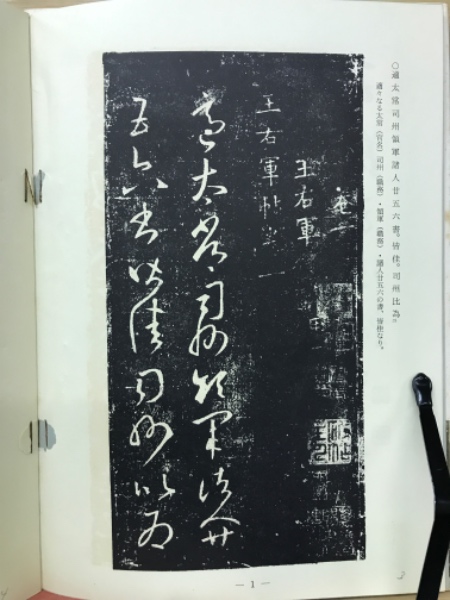 ○適太常司州領軍諸人廿五六書。皆佳。司州比為〃
適々なる太常(官名)司州(職務)・領軍(職務)・諸人廿五六の書、皆佳なり。
王右軍
王右軍帖卷一
適太常司州領軍諸人廿
五六書皆佳司州比為
— 1 —